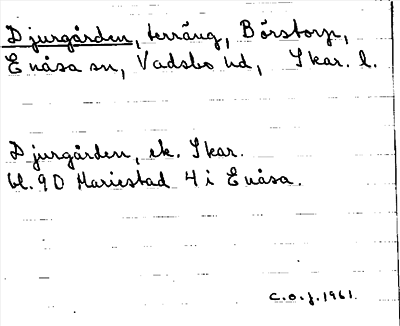 Djurgården, terräng, Börstorp,
Enåsa sn, Vadsbo hd, Skar. l.
Djurgården, ek. Skar.
bl. 90 Mariestad 4 i Enåsa.
C.o.j. 1961.